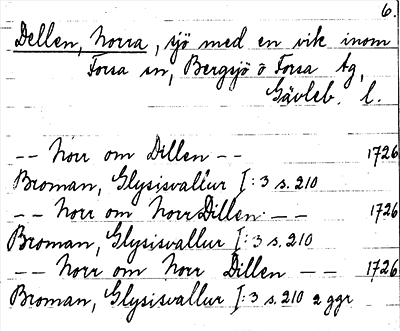 6.
Dellen, Norra, sjö med en vik inom
Forsa sn, Bergsjö o Forsa tg,
Gävleb. l.
-- Norr om Dillen -- 1726
Broman, Glysisvallur I: 3 s. 210
-- Norr om Norr Dillen -- 1726
Broman, Glysisvallur I: 3 s. 210
-- Norr om Norr Dillen -- 1726
Broman, Glysisvallur I: 3 s. 210 2 ggr